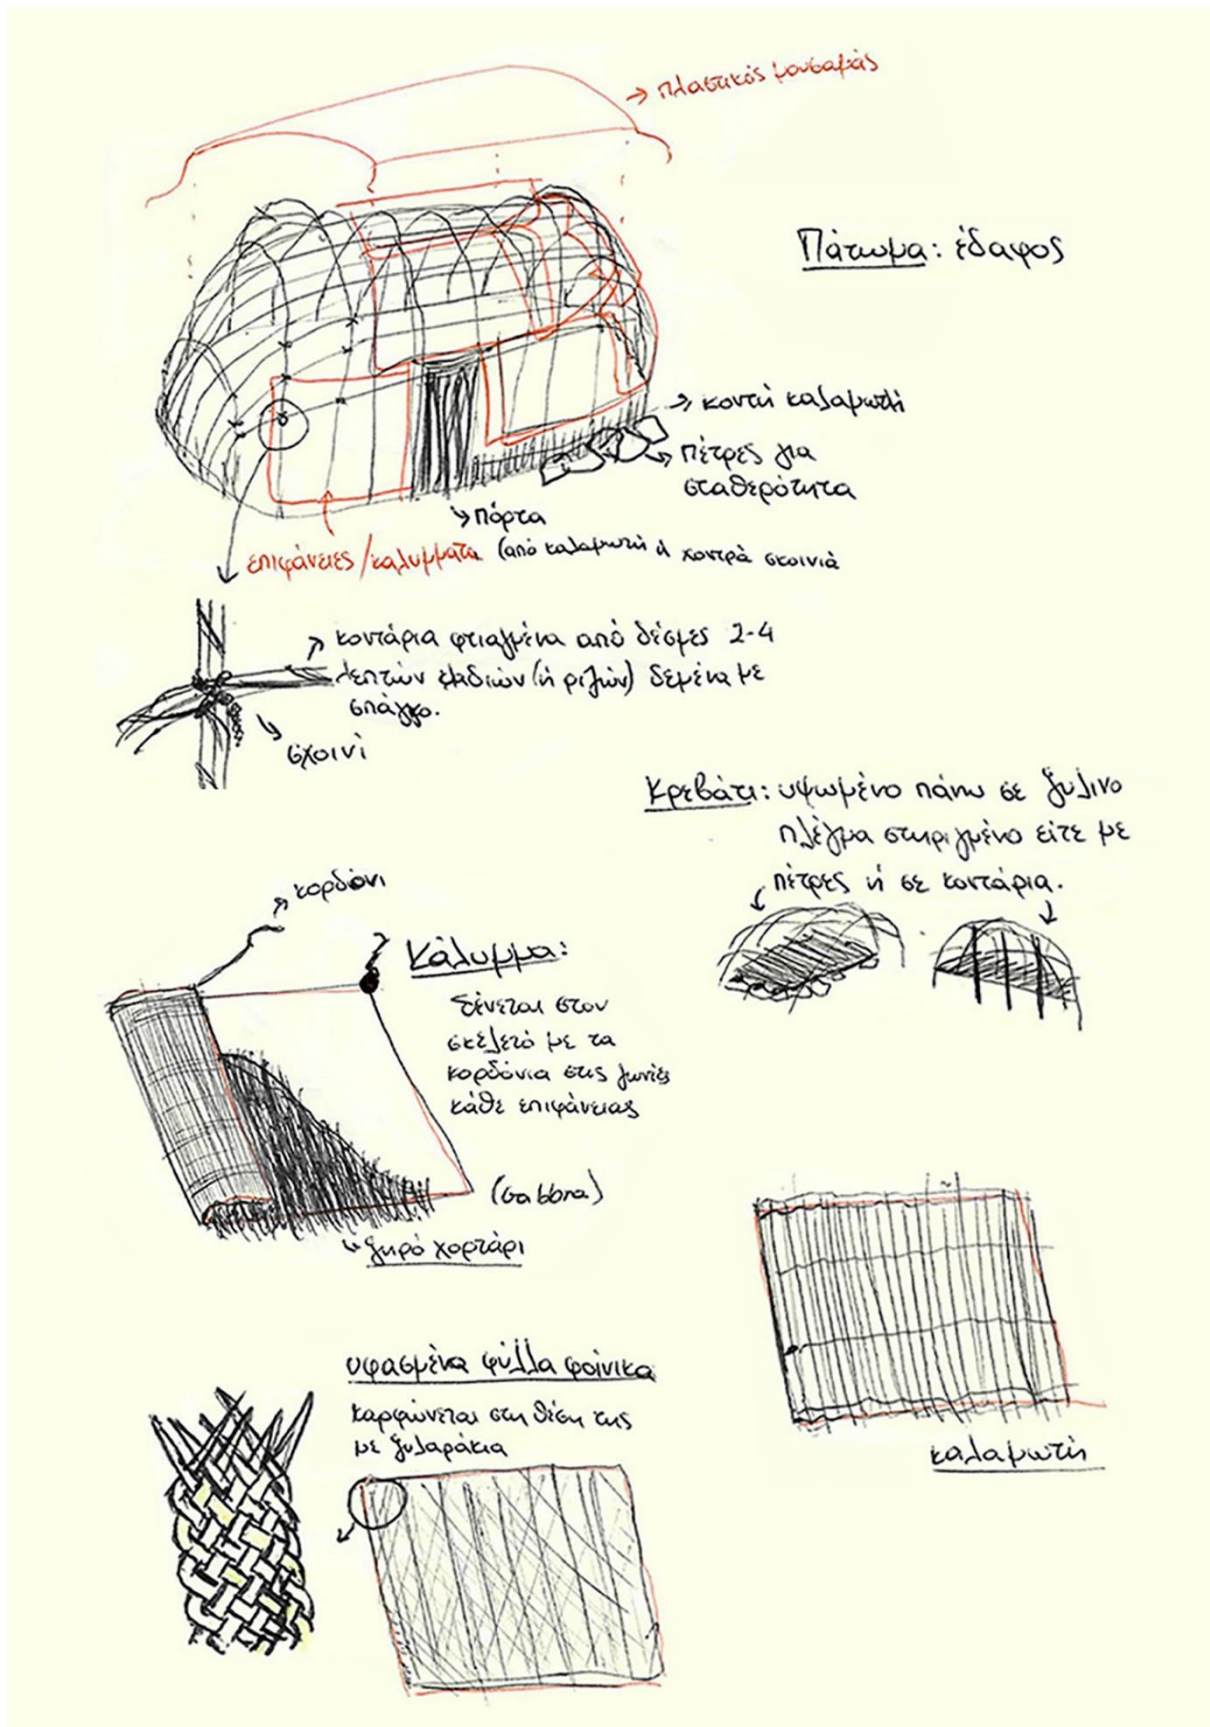 πλαστικός μουσαμάς
Πάτωμα: έδαφος
κοντή καλαμωτή
πέτρες για
σταθερότητα
πόρτα
επιφάνειες/καλύμματα (από καλαμωτή ή χοντρά σκοινιά
κοντάρια φτιαγμένα από δέσμες 2-4
λεπτών κλαδιών (ή ριζών) δεμένα με
σπάγγο.
σχοινί
Κρεβάτι: υψωμένο πάνω σε ξύλινο
πλέγμα στηριγμένο είτε με
πέτρες ή σε κοντάρια.
κορδόνι
Κάλυμμα:
δένεται στον
σκελετό με τα
κορδόνια στις γωνίες
κάθε επιφάνειας
ξηρό χορτάρι
υφασμένα φύλλα φοίνικα
καρφώνεται στη θέση της
με ξυλαράκια
καλαμωτή